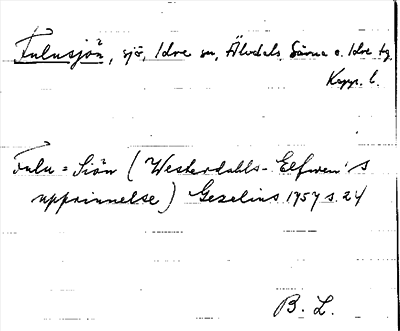 Fulusjön, sjö, Idre sn, Älvdals, Särna o. Idre tg,
Kopp. l.
Fulu = Siön (Westerdahls-Elfwen's
upprinnelse) Gezelius 1757 s. 24
B. L.